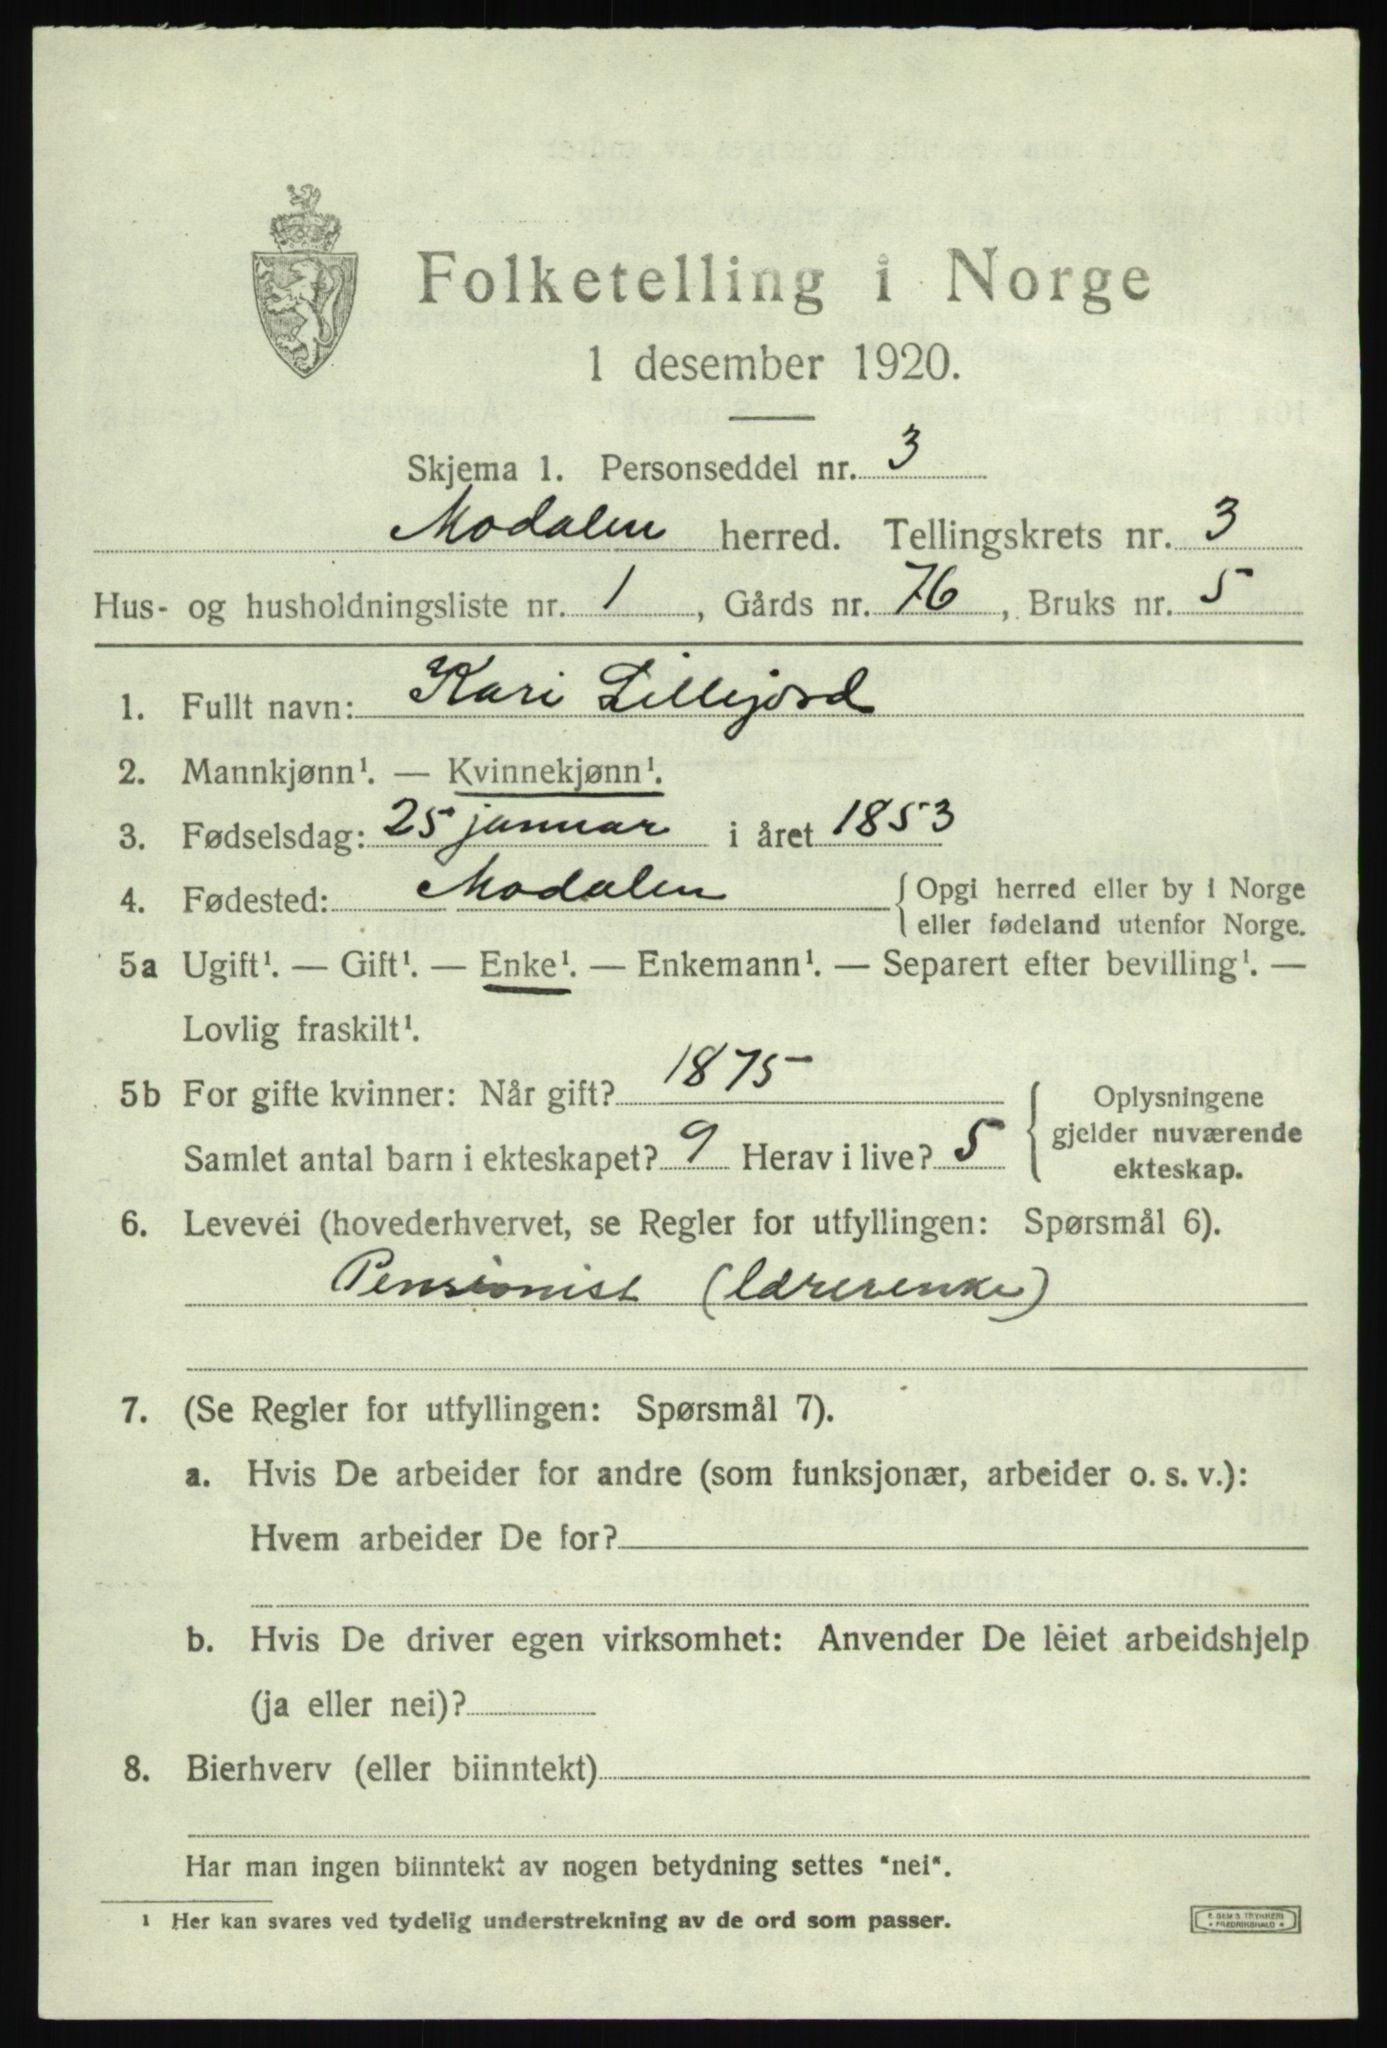 Folketelling i Norge
1 desember 1920.
Skjema 1. Personseddel nr. 3
Modalen herred. Tellingskrets nr. 3
Hus- og husholdningsliste nr. 1, Gårds nr. 76, Bruks nr. 5
1. Fullt navn: Kari Lillejord
2. Mannkjønn¹. — Kvinnekjønn¹.
3. Fødselsdag: 25 januar i året 1853
4. Fødested: Modalen { Opgi herred eller by i Norge
eller fødeland utenfor Norge.
5a Ugift¹. — Gift¹. — Enke¹. — Enkemann¹. — Separert efter bevilling¹. —
Lovlig fraskilt¹.
5b For gifte kvinner: Når gift? 1875
Samlet antal barn i ekteskapet? 9 Herav i live? 5
{ Oplysningene
gjelder nuværende
ekteskap.
6. Levevei (hovederhvervet, se Regler for utfyllingen: Spørsmål 6).
Pensionist (lærerenke)
7. (Se Regler for utfyllingen: Spørsmål 7).
a. Hvis De arbeider for andre (som funksjonær, arbeider o. s. v.):
Hvem arbeider De for?
b. Hvis De driver egen virksomhet: Anvender De leiet arbeidshjelp
(ja eller nei)?
8. Bierhverv (eller biinntekt)
Har man ingen biinntekt av nogen betydning settes "nei".
¹ Her kan svares ved tydelig understrekning av de ord som passer.